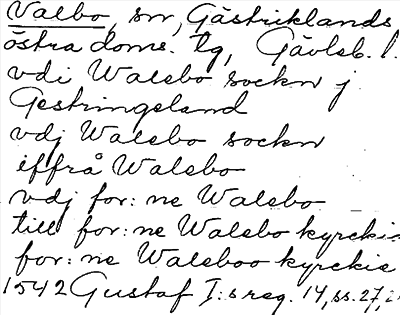 Valbo, sn, Gästriklands
östra doms. tg, Gävleb. l.
vdi Walsbo sockn j
Gestringeland
vdj Walsbo sockn
iffrå Walsbo
vdj for:ne Walsbo
till for:ne Walsbo kyrckia
for:ne Walsboo kyrckie
1542 Gustaf I:s reg. 14, ss. 27,